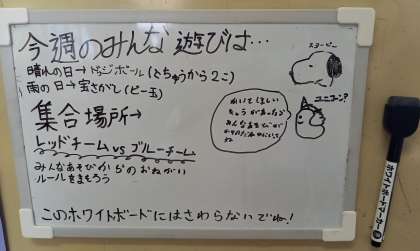 今週のみんな遊びは…
晴れの日→ドッジボール(とちゅうから2こ)
雨の日→宝さがし(ビー玉)
集合場所→
レッドチーム vs ブルーチーム
みんなあそびからのおねがい
ルールをまもろう
このホワイトボードにはさわらないでね!
スヌーピー
ユニコーン?
かいてほしい
みんなあそびが
ホワイトボードマーカー